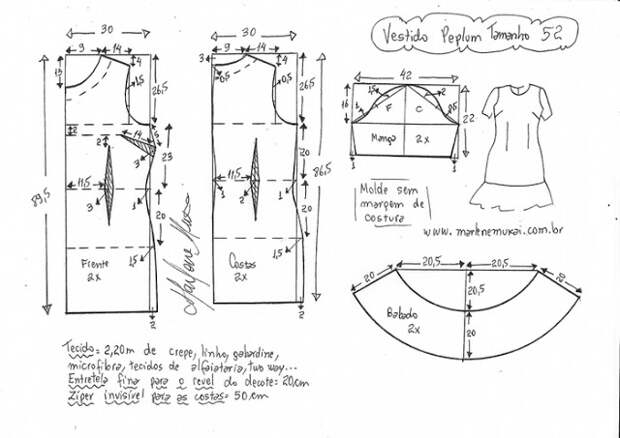 Vestido Peplum Tamanho 52
30
9 14
4
13
1,5
26,5
2
14
5
2
3
23
11,5
3
1
20
89,5
1,5
Frente
2x
2
30
9 14
3
4
0,5
0,5
26,5
20
11,5
3
1
20
86,5
1,5
Costas
2x
2
Marlene Mukai
42
1,5
2
16
F C
1
0,5
22
Manga 2x
1 1
Molde sem
margem de
costura
www.marlenemukai.com.br
20,5 20,5
20 20
20,5
Babado
2x
20
Tecido = 2,20m de crepe, linho, gabardine,
microfibra, tecidos de alfaiataria, two way...
Entretela fina para o revel do decote = 20cm
Zíper invisível para as costas = 50cm